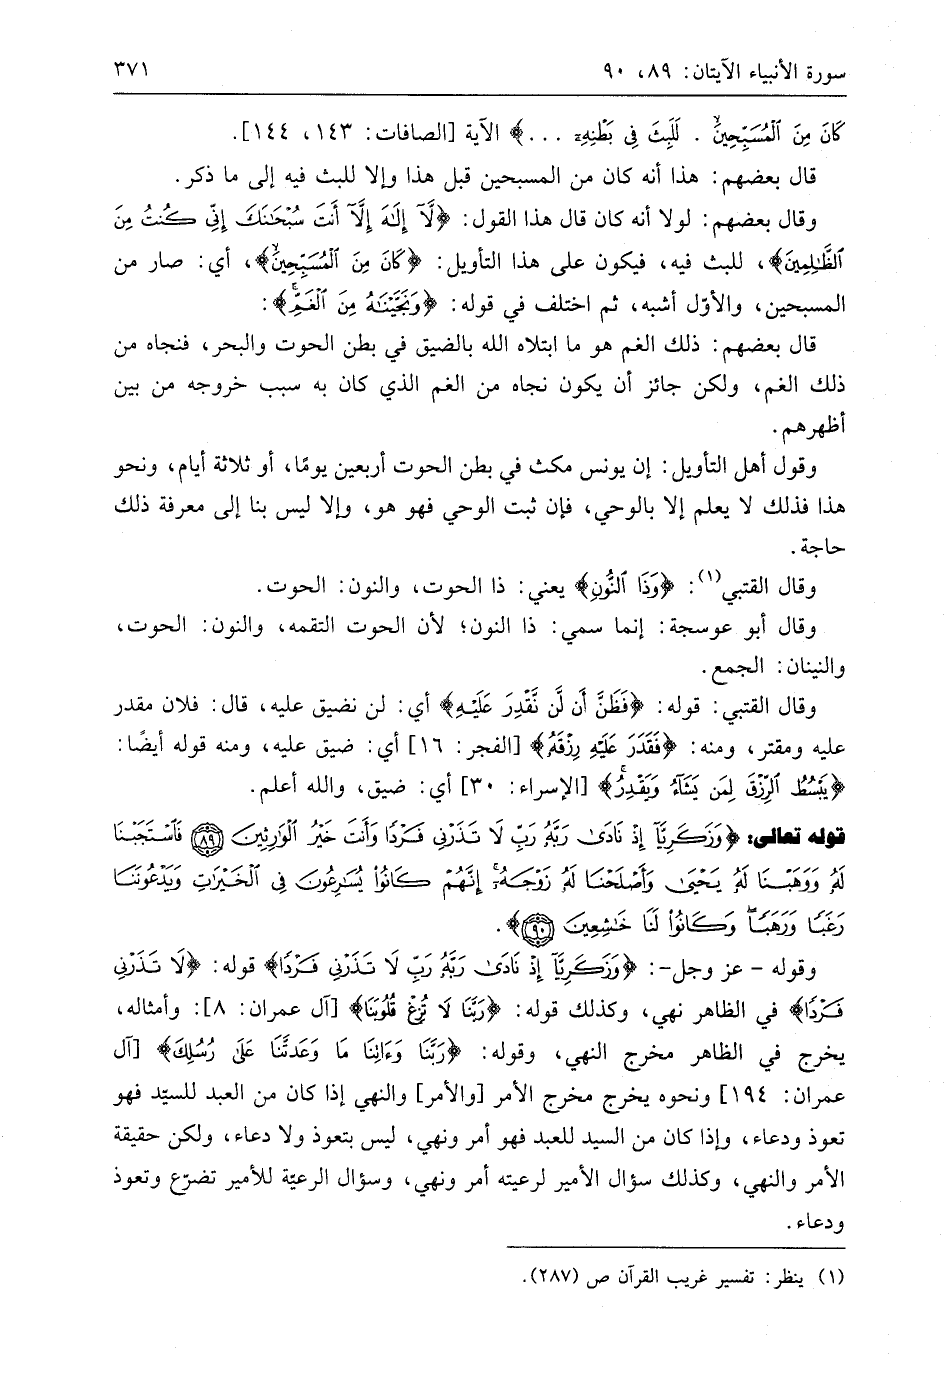 سورة الأنبياء الآيتان: ٨٩، ٩٠ ٣٧١
كَانَ مِنَ ٱلْمُسَبِّحِينَ . لَلَبِثَ فِى بَطْنِهِۦ ...﴾ الآية [الصافات: ١٤٣، ١٤٤].
قال بعضهم: هذا أنه كان من المسبحين قبل هذا وإلا للبث فيه إلى ما ذكر.
وقال بعضهم: لولا أنه كان قال هذا القول: ﴿لَّآ إِلَٰهَ إِلَّآ أَنتَ سُبْحَٰنَكَ إِنِّى كُنتُ مِنَ
ٱلظَّٰلِمِينَ﴾، للبث فيه، فيكون على هذا التأويل: ﴿كَانَ مِنَ ٱلْمُسَبِّحِينَ﴾، أي: صار من
المسبحين، والأوّل أشبه، ثم اختلف في قوله: ﴿وَنَجَّيْنَٰهُ مِنَ ٱلْغَمِّ﴾:
قال بعضهم: ذلك الغم هو ما ابتلاه الله بالضيق في بطن الحوت والبحر، فنجاه من
ذلك الغم، ولكن جائز أن يكون نجاه من الغم الذي كان به سبب خروجه من بين
أظهرهم.
وقول أهل التأويل: إن يونس مكث في بطن الحوت أربعين يومًا، أو ثلاثة أيام، ونحو
هذا فذلك لا يعلم إلا بالوحي، فإن ثبت الوحي فهو هو، وإلا ليس بنا إلى معرفة ذلك
حاجة.
وقال القتبي(١): ﴿وَذَا ٱلنُّونِ﴾ يعني: ذا الحوت، والنون: الحوت.
وقال أبو عوسجة: إنما سمي: ذا النون؛ لأن الحوت التقمه، والنون: الحوت،
والنينان: الجمع.
وقال القتبي: قوله: ﴿فَظَنَّ أَن لَّن نَّقْدِرَ عَلَيْهِ﴾ أي: لن نضيق عليه، قال: فلان مقدر
عليه ومقتر، ومنه: ﴿فَقَدَرَ عَلَيْهِ رِزْقَهُۥ﴾ [الفجر: ١٦] أي: ضيق عليه، ومنه قوله أيضًا:
﴿يَبْسُطُ ٱلرِّزْقَ لِمَن يَشَآءُ وَيَقْدِرُ﴾ [الإسراء: ٣٠] أي: ضيق، والله أعلم.
قوله تعالى: ﴿وَزَكَرِيَّآ إِذْ نَادَىٰ رَبَّهُۥ رَبِّ لَا تَذَرْنِى فَرْدًا وَأَنتَ خَيْرُ ٱلْوَٰرِثِينَ ٨٩ فَٱسْتَجَبْنَا
لَهُۥ وَوَهَبْنَا لَهُۥ يَحْيَىٰ وَأَصْلَحْنَا لَهُۥ زَوْجَهُۥٓ إِنَّهُمْ كَانُوا۟ يُسَٰرِعُونَ فِى ٱلْخَيْرَٰتِ وَيَدْعُونَنَا
رَغَبًا وَرَهَبًا وَكَانُوا۟ لَنَا خَٰشِعِينَ ٩٠﴾.
وقوله - عز وجل-: ﴿وَزَكَرِيَّآ إِذْ نَادَىٰ رَبَّهُۥ رَبِّ لَا تَذَرْنِى فَرْدًا﴾ قوله: ﴿لَا تَذَرْنِى
فَرْدًا﴾ في الظاهر نهي، وكذلك قوله: ﴿رَبَّنَا لَا تُزِغْ قُلُوبَنَا﴾ [آل عمران: ٨]: وأمثاله،
يخرج في الظاهر مخرج النهي، وقوله: ﴿رَبَّنَا وَءَاتِنَا مَا وَعَدتَّنَا عَلَىٰ رُسُلِكَ﴾ [آل
عمران: ١٩٤] ونحوه يخرج مخرج الأمر [والأمر] والنهي إذا كان من العبد للسيّد فهو
تعوذ ودعاء، وإذا كان من السيد للعبد فهو أمر ونهي، ليس بتعوذ ولا دعاء، ولكن حقيقة
الأمر والنهي، وكذلك سؤال الأمير لرعيته أمر ونهي، وسؤال الرعيّة للأمير تضرّع وتعوذ
ودعاء.
(١) ينظر: تفسير غريب القرآن ص (٢٨٧).